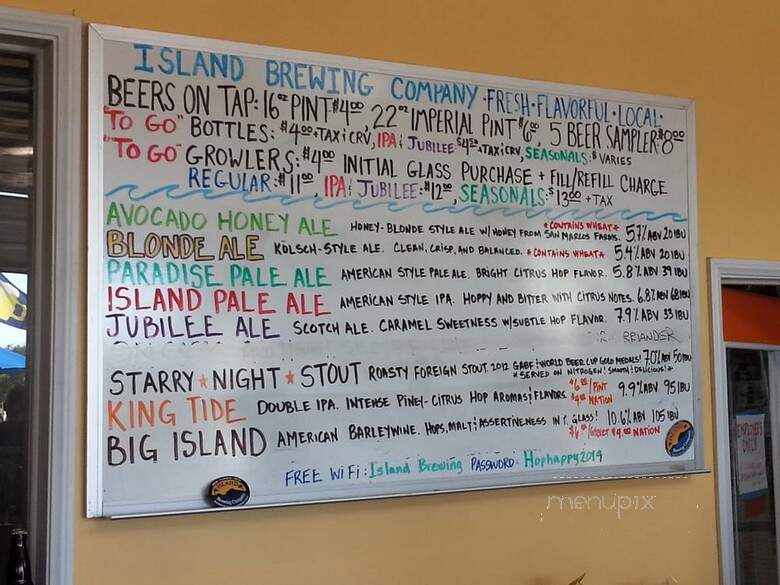 ISLAND BREWING COMPANY · FRESH · FLAVORFUL · LOCAL ·
BEERS ON TAP: 16oz PINT $4.00, 22oz IMPERIAL PINT $6.00, 5 BEER SAMPLER: $8.00
"TO GO" BOTTLES: $4.00 + TAX & CRV, IPA & JUBILEE $4.50 + TAX & CRV, SEASONALS: $ VARIES
"TO GO" GROWLERS: $4.00 INITIAL GLASS PURCHASE + FILL/REFILL CHARGE
REGULAR: $11.00, IPA & JUBILEE: $12.00, SEASONALS: $13.00 + TAX
AVOCADO HONEY ALE HONEY-BLONDE STYLE ALE W/ HONEY FROM SAN MARCOS FARMS. *CONTAINS WHEAT* 5.7% ABV 20 IBU
BLONDE ALE KÖLSCH-STYLE ALE. CLEAN, CRISP, AND BALANCED. *CONTAINS WHEAT* 5.4% ABV 20 IBU
PARADISE PALE ALE AMERICAN STYLE PALE ALE. BRIGHT CITRUS HOP FLAVOR. 5.8% ABV 39 IBU
ISLAND PALE ALE AMERICAN STYLE IPA. HOPPY AND BITTER WITH CITRUS NOTES. 6.8% ABV 68 IBU
JUBILEE ALE SCOTCH ALE. CARAMEL SWEETNESS W/ SUBTLE HOP FLAVOR. 7.9% ABV 33 IBU
STARRY * NIGHT * STOUT ROASTY FOREIGN STOUT. 2012 GABF & WORLD BEER CUP GOLD MEDALS! 7.0% ABV 50 IBU
*SERVED ON NITROGEN! SMOOTH & DELICIOUS! *
KING TIDE DOUBLE IPA. INTENSE PINEY-CITRUS HOP AROMAS & FLAVORS $6.00/PINT 9.9% ABV 95 IBU
NATION
BIG ISLAND AMERICAN BARLEYWINE. HOPS, MALT & ASSERTIVENESS IN A GLASS! 10.6% ABV 105 IBU
$9.00 NATION
FREE WIFI: Island Brewing PASSWORD: Hophappy2014
ISLAND
EMPLOYEES
ONLY
menupix